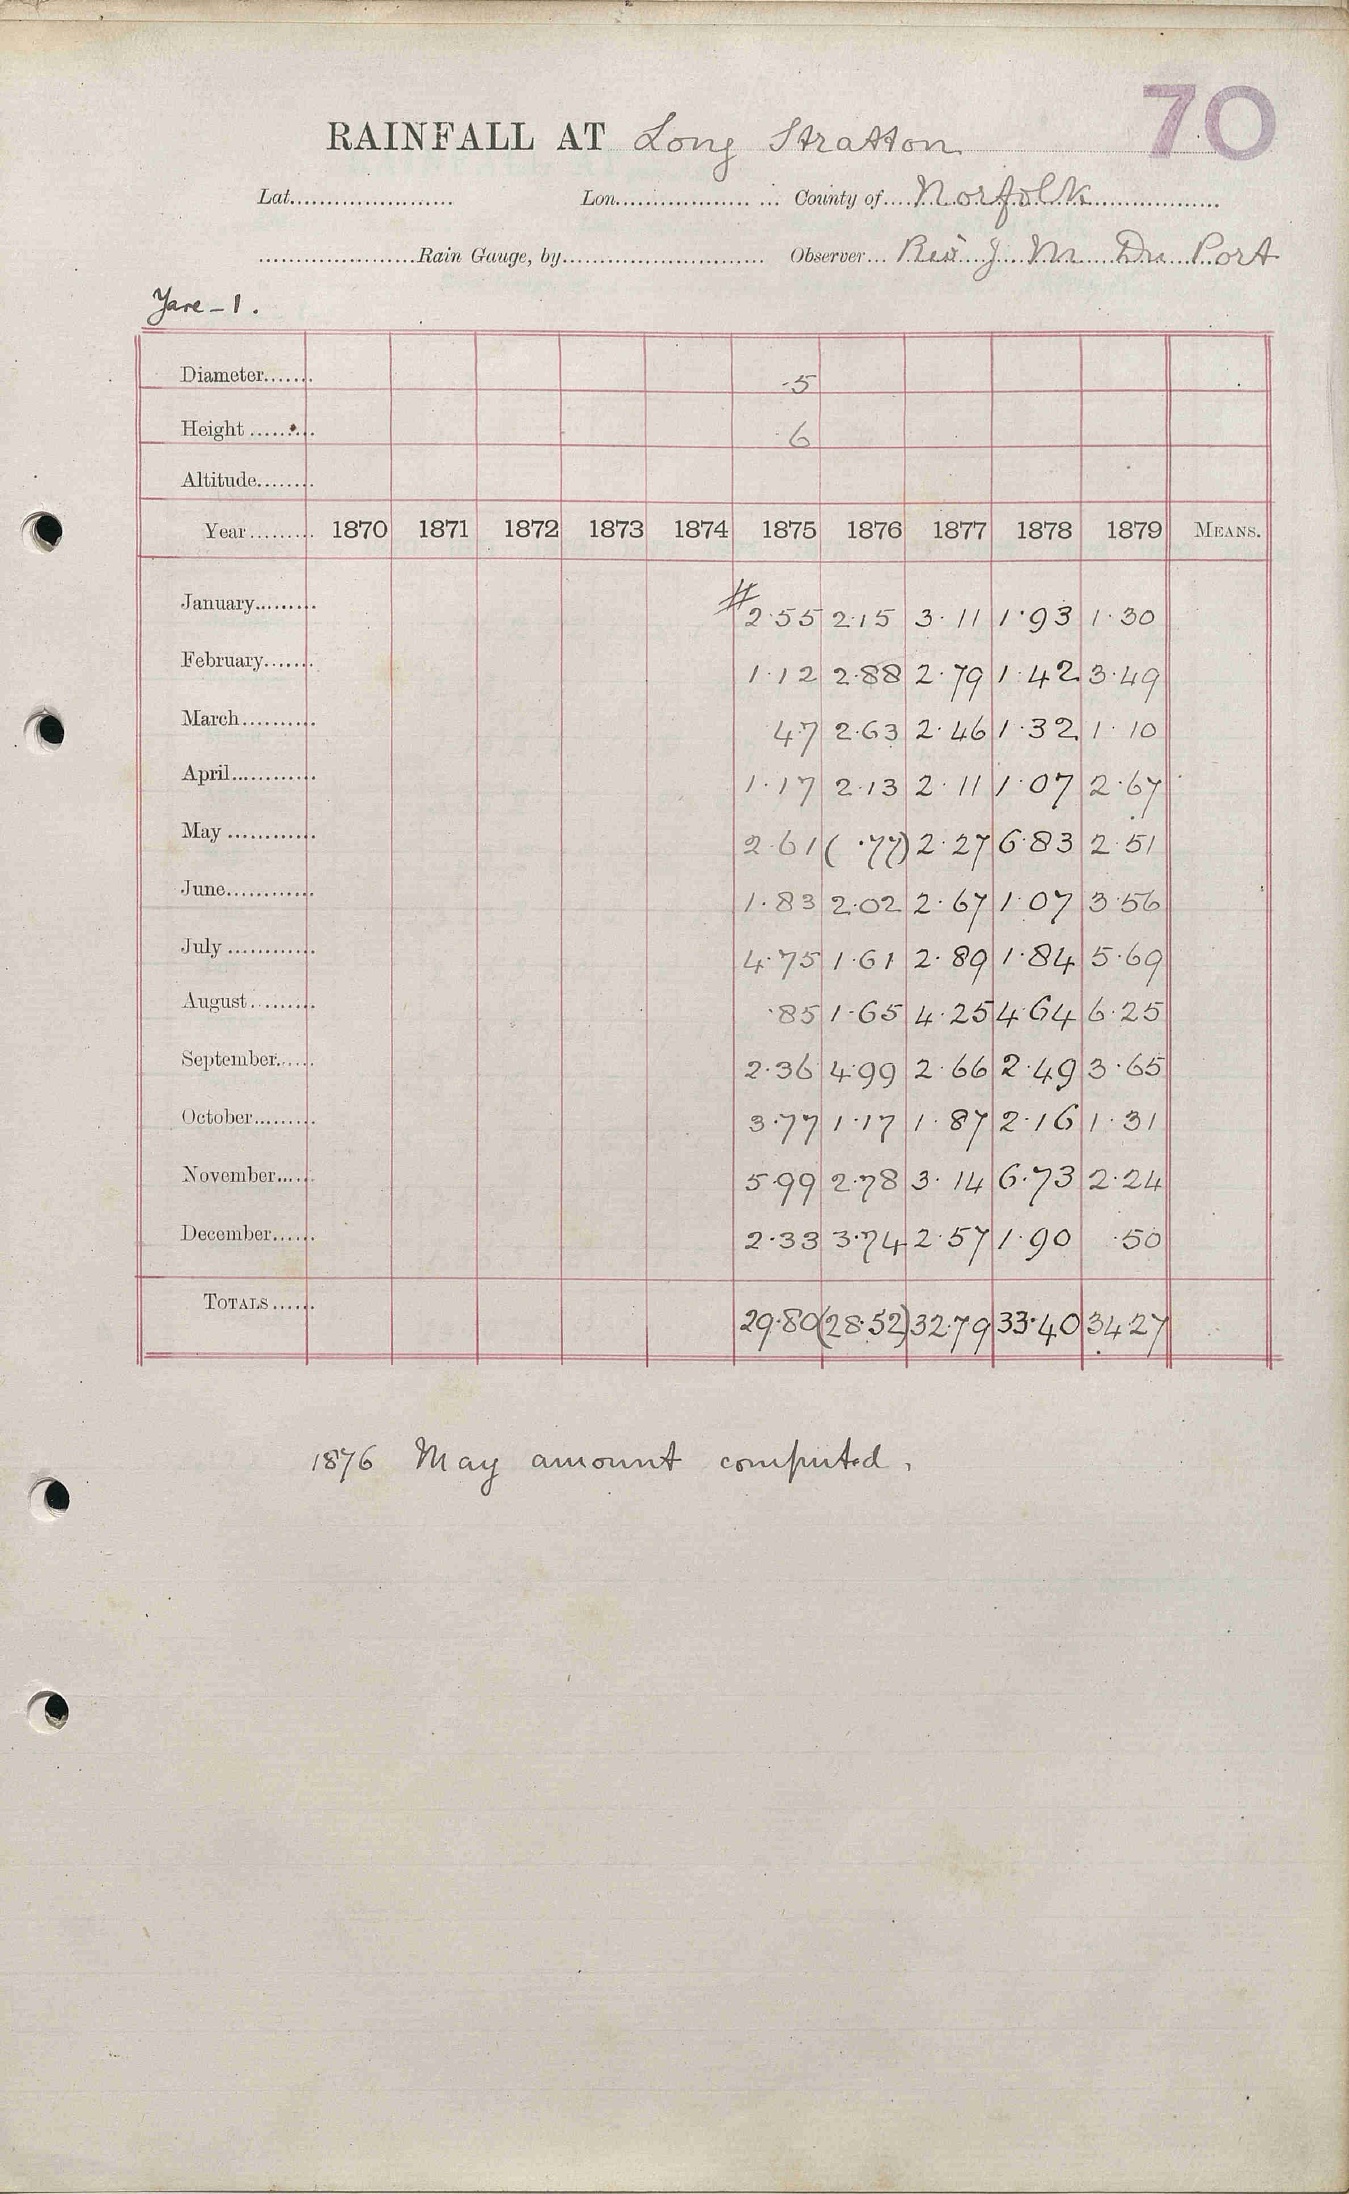 70
RAINFALL AT Long Stratton
Lat. Lon. County of Norfolk
Rain Gauge, by Observer Rev J M Du Port
Yare - 1.
Diameter 5
Height 6
Altitude
Year 1870 1871 1872 1873 1874 1875 1876 1877 1878 1879 MEANS.
January # 2.55 2.15 3.11 1.93 1.30
February 1.12 2.88 2.79 1.42 3.49
March .47 2.63 2.46 1.32 1.10
April 1.17 2.13 2.11 1.07 2.67
May 2.61 (.77) 2.27 6.83 2.51
June 1.83 2.02 2.67 1.07 3.56
July 4.75 1.61 2.89 1.84 5.69
August .85 1.65 4.25 4.64 6.25
September 2.36 4.99 2.66 2.49 3.65
October 3.77 1.17 1.87 2.16 1.31
November 5.99 2.78 3.14 6.73 2.24
December 2.33 3.74 2.57 1.90 .50
TOTALS 29.80 (28.52) 32.79 33.40 34.27
1876 May amount computed.